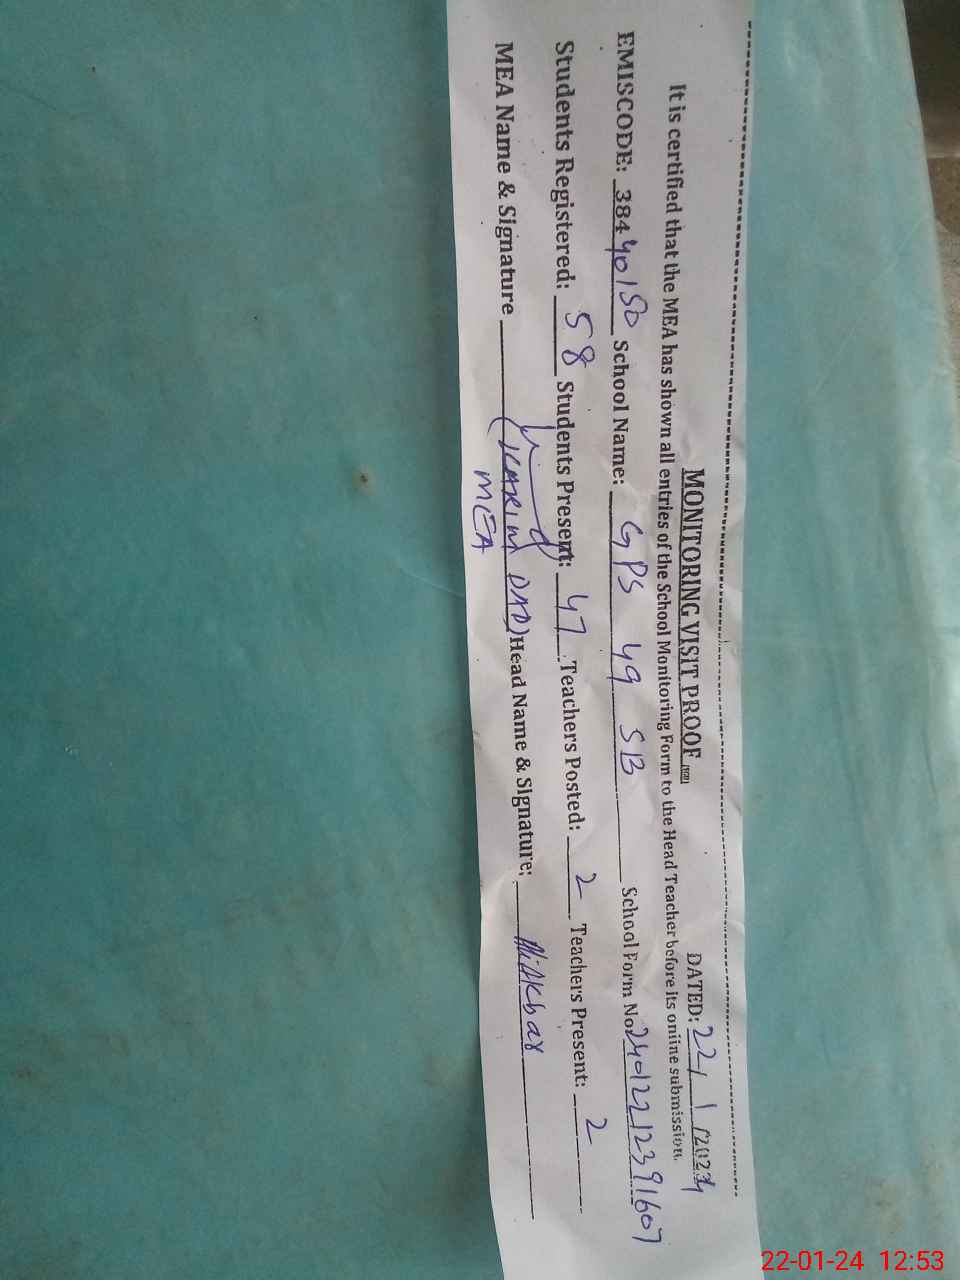 MONITORING VISIT PROOF
DATED: 22/1/2024
It is certified that the MEA has shown all entries of the School Monitoring Form to the Head Teacher before its online submission.
EMISCODE: 38440150 School Name: GPS 49 SB School Form No 24012212391607
Students Registered: 58 Students Present: 47 Teachers Posted: 2 Teachers Present: 2
MEA Name & Signature (KARIM DAD) Head Name & Signature: Ali Akbar
MEA
22-01-24 12:53